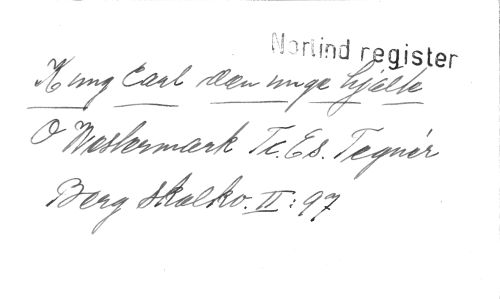 Nortind register
Kung Carl den unge hjälte
O Westermark Tc. Es. Tegnér
Berg Skolko. II: 97